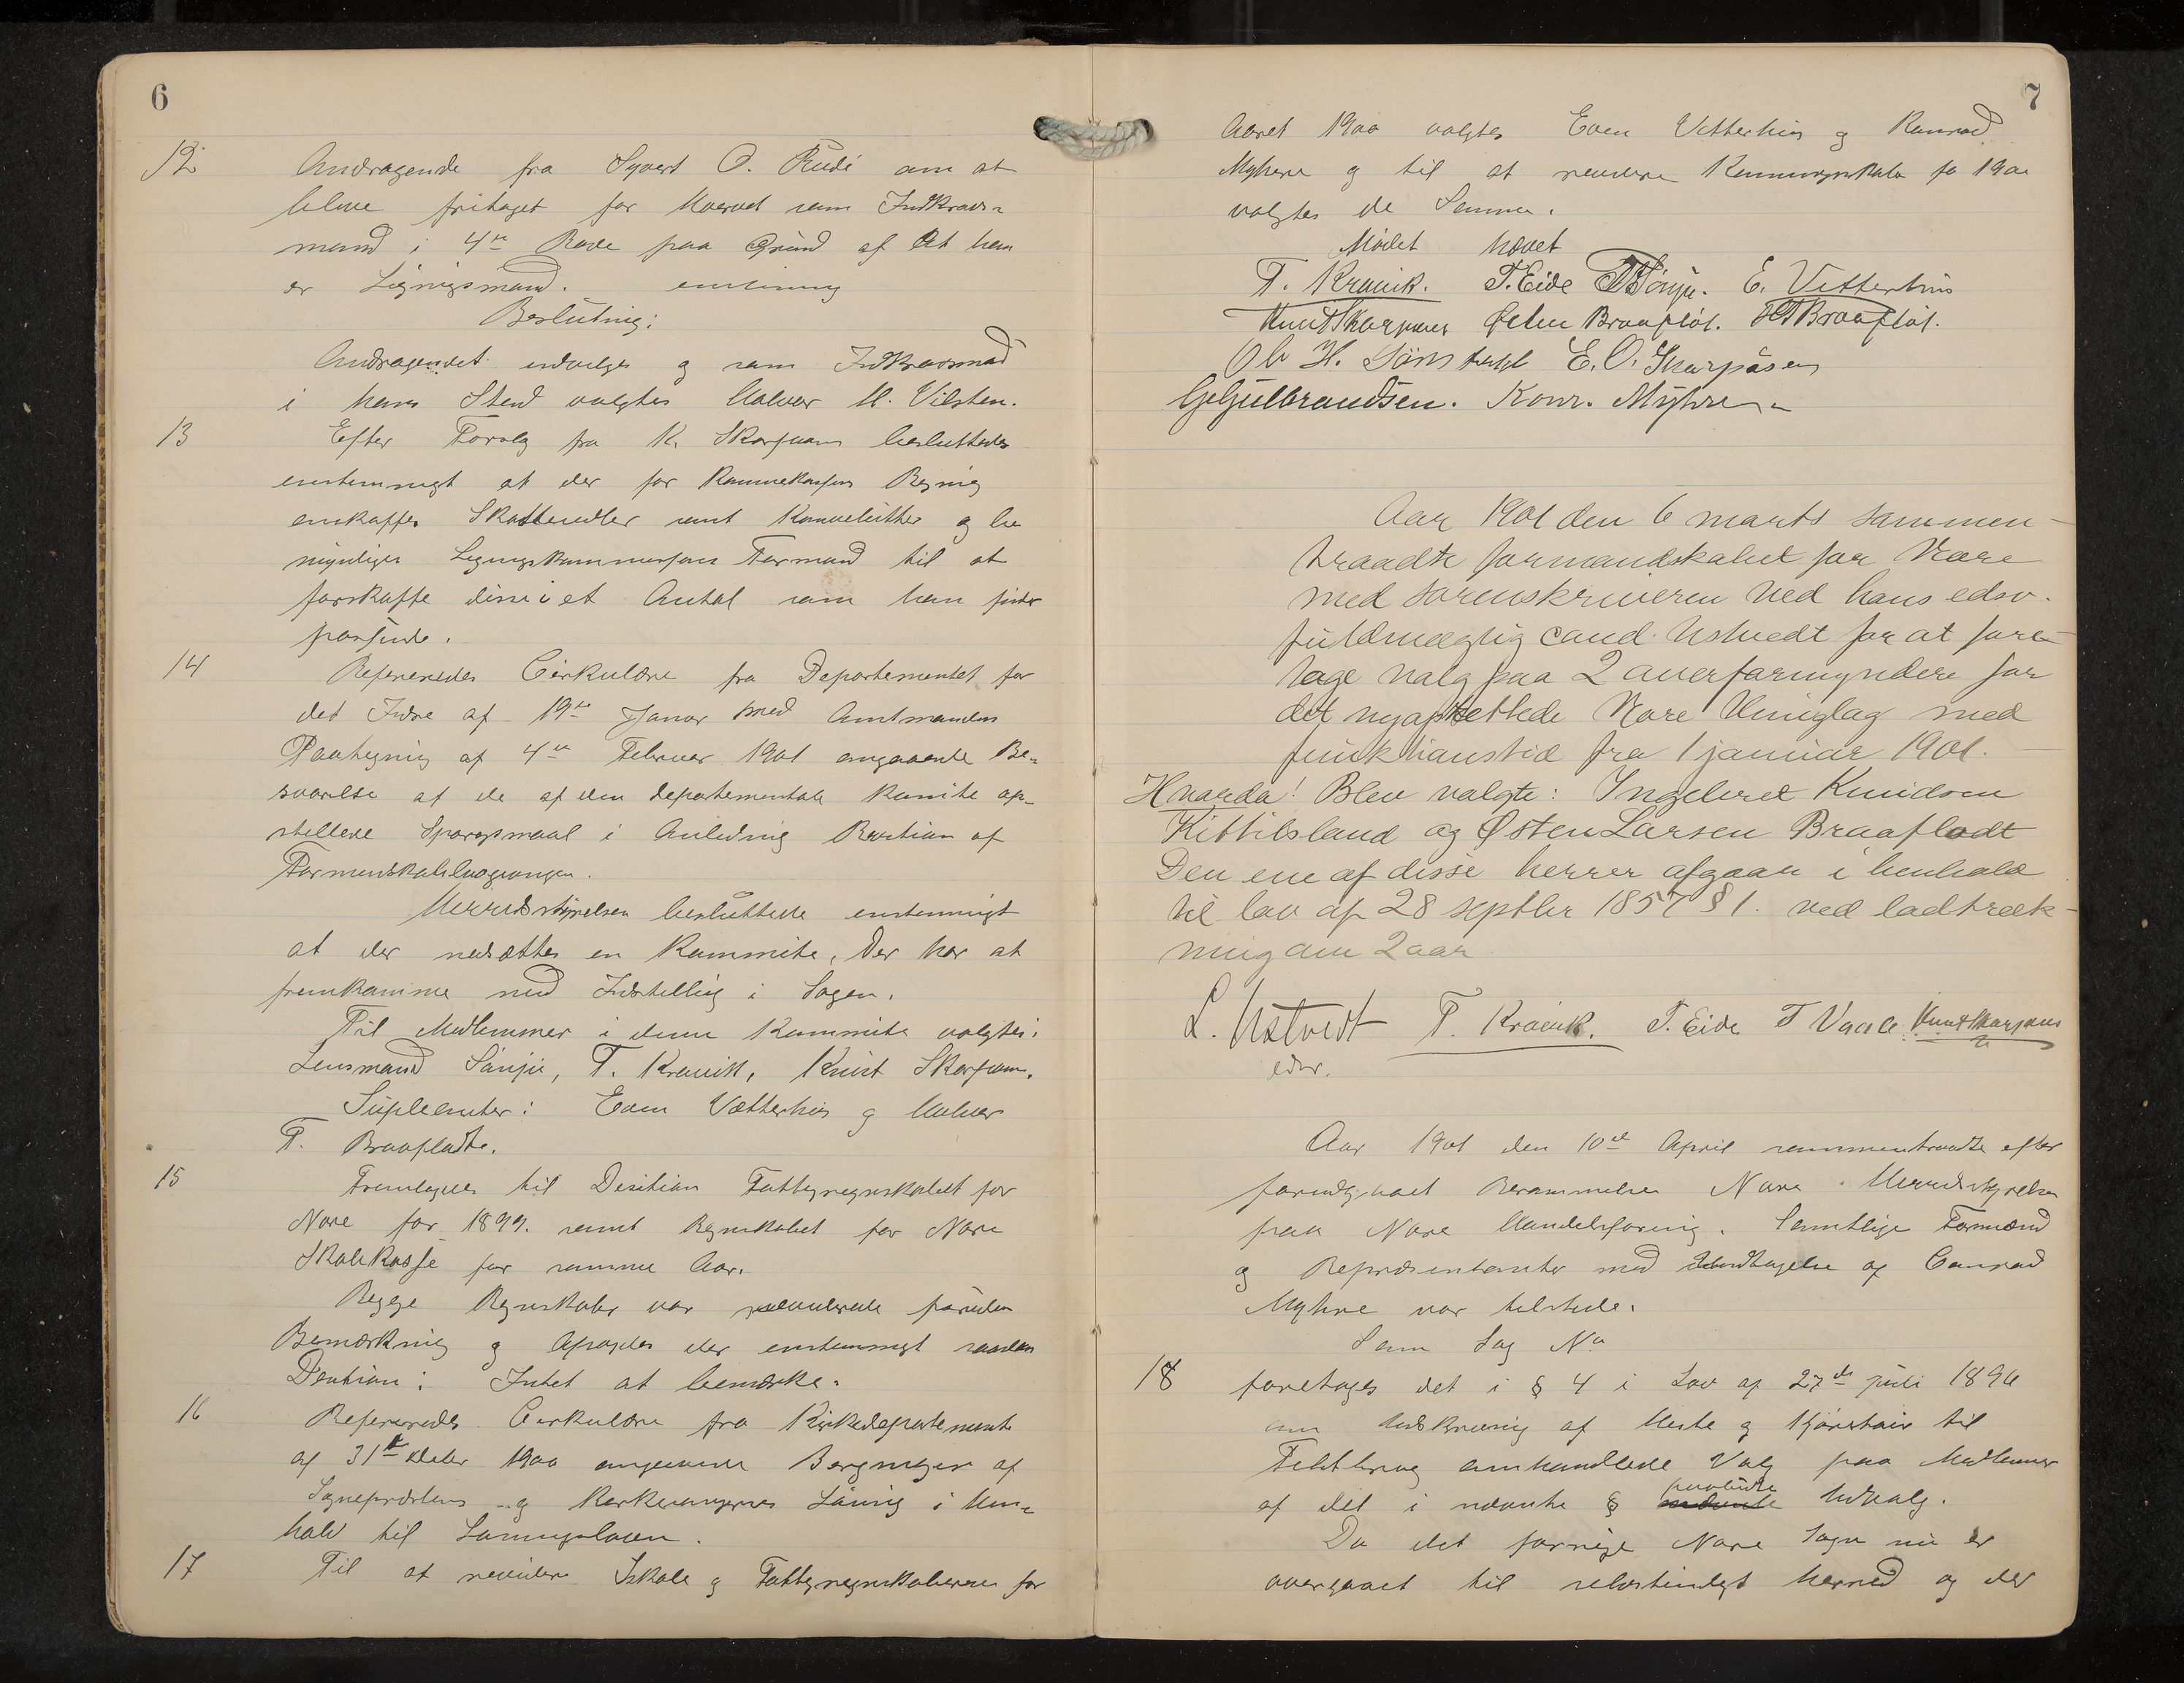 6
12 Andragende fra Syvert O. Rudi om at
blive fritaget for Hvervet som Indkrævs-
mand i 4de Rode paa Grund af at han
er Ligningsmand.
Beslutning:
Andragendet indvilges og som Indkrævsmand
i hans Sted valgtes Halvor H. Vilsten.
13 Efter Forslag fra K. Skarpaas besluttedes
enstemmigt at der for Kommunekassens Regning
anskaffes Skattesedler samt Konvolutter og be
myndiges Ligningskommissionens Formand til at
forskaffe disse i et Antal som han finder
passende.
14 Refereredes Cirkulære fra Departementet for
det Indre af 19de Januar med Amtmandens
Paategning af 4de Februar 1901 angaaende Be-
svarelse af de af den departementale Komite op-
stillede Spørgsmaal i Anledning Revision af
Formandskabslovgivningen.
Herredsstyrelsen besluttede enstemmigt
at der nedsættes en Kommite, der har at
fremkomme med Indstilling i Sagen.
Til Medlemmer i denne Kommite valgtes:
Lensmand Sønju, T. Kravik, Knut Skarpaas.
Supleanter: Even Vætterhus og Halvor
T. Braafladt.
15 Fremlagdes til Desition Fattigregnskabet for
Nore for 1899. samt Regnskabet for Nore
Skolekasse for samme Aar.
Begge Regnskaber var reviderede foruden
Bemærkning og afgaves der enstemmigt saadan
Desition: Intet at bemærke.
16 Refereredes Cirkulære fra Kirkedepartementet
af 31te Debr 1900 angaaende Beregninger af
Sogneprestens og Kirkesangernes Lønning i Hen-
hold til Lønningsloven.
17 Til at revidere Skole og Fattigregnskaberne for
7
Aaret 1900 valgtes Even Vetterhus og Konrad
Myhre og til at revidere Kommuneregnskabet for 1900
valgtes de Samme.
Mødet hævet
T. Kravik. T. Eide T Sønju. E. Vetterhus
Knut Skarpaas Østen Braaflåt. H T Braaflåt.
Ole H. Sønsteby E. O. Skarpåsen
G Gulbrandsen. Konr. Myhre
Aar 1901 den 6 marts sammen-
traadte formandskabet for Nore
med sorenskriveren ved hans edsv.
fuldmægtig cand. Ustvedt for at fore-
tage valg paa 2 overformyndere for
det nyoprettede Nore thinglag med
funktionstid fra 1 januar 1901.
Hvorda! Blev valgte: Ingebret Knudsen
Kittilsland og Østen Larsen Braaflodt
Den ene af disse herrer afgaar i henhold
til lov af 28 septbr 1857 § 1. ved lodtræk-
ning om 2 aar
L. Ustvedt T. Kravik. T. Eide T Vaale. Knut Skarpaas
edsv.
Aar 1901 den 10de April sammentraadte efter
forudgaaet Berammelse Nore Herredsstyrelse
paa Nore Handelsforening. Samtlige Formænd
og Repræsentanter med Undtagelse af Conrad
Myhre var tilstede.
Som Sag No
18 foretages det i § 4 i Lov af 27de juli 1896
om Udskrivning af Heste og Kjøretøier til
Feltbrug omhandlede Valg paa Medlemmer
af det i nævnte § paabudte Udvalg.
Da det forrige Nore Sogn nu er
overgaaet til selvstændigt herred og der